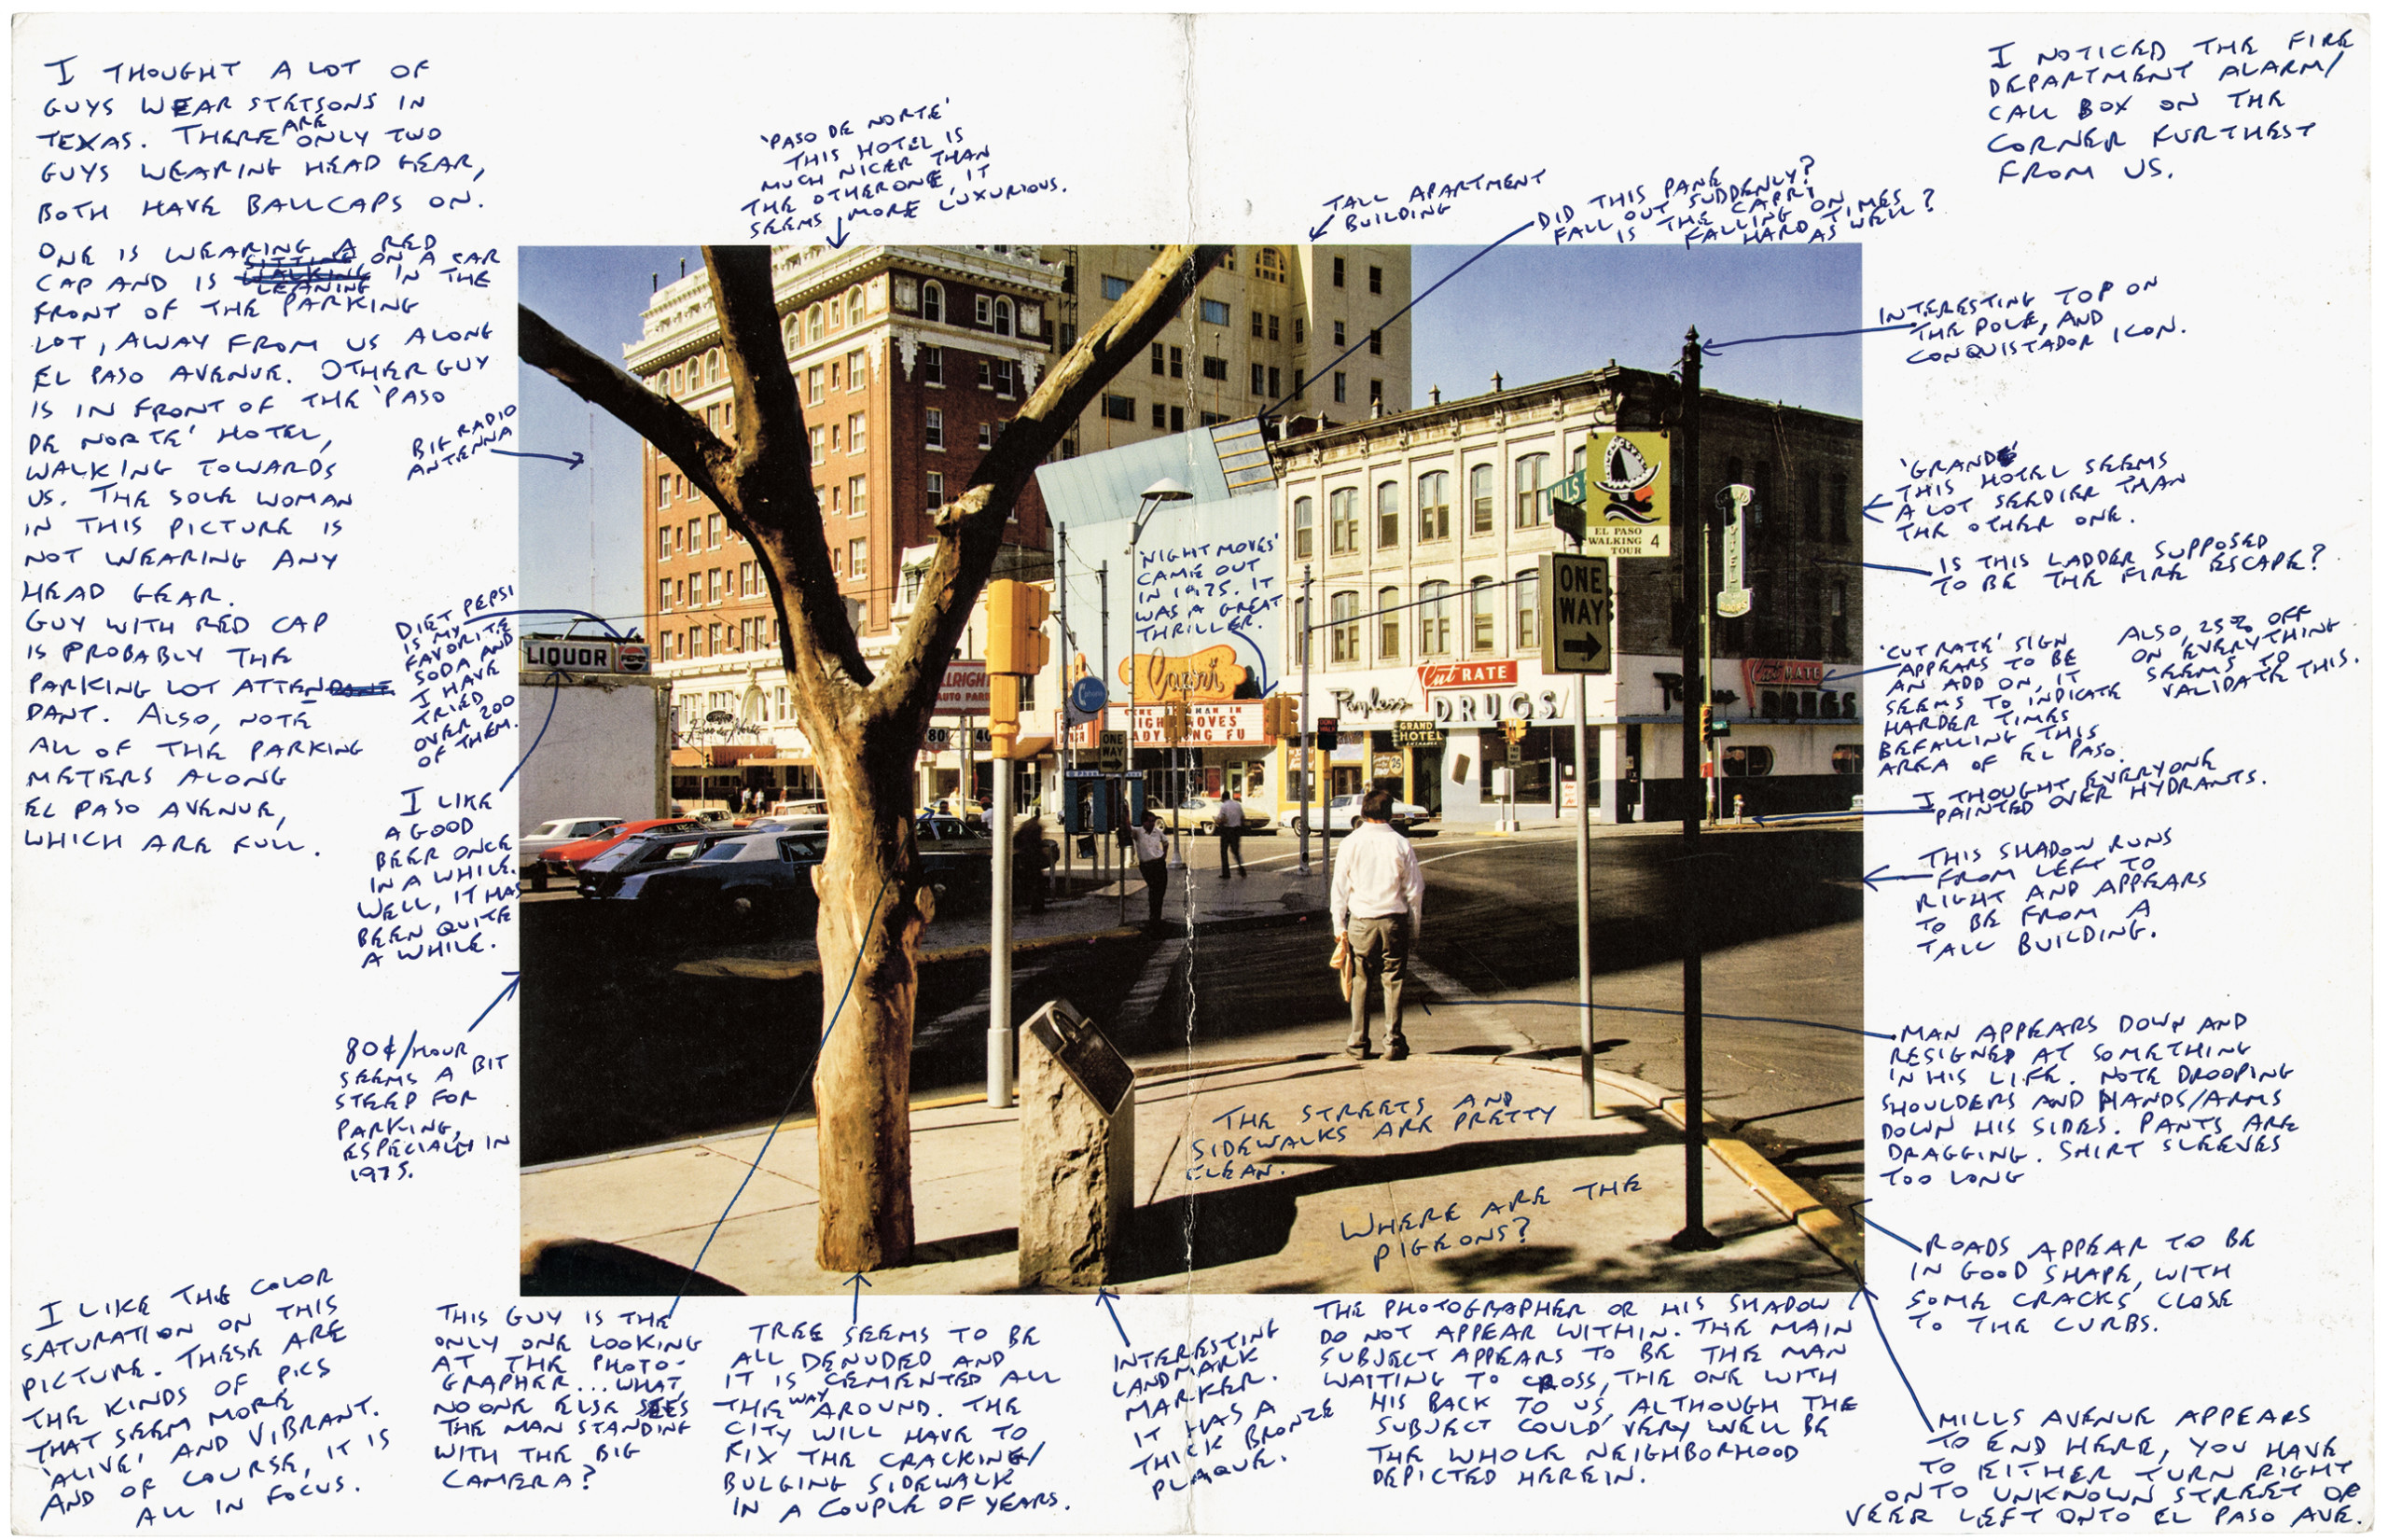 I THOUGHT A LOT OF
GUYS WEAR STETSONS IN
TEXAS. THERE ARE ONLY TWO
GUYS WEARING HEAD GEAR,
BOTH HAVE BALLCAPS ON.
ONE IS WEARING A RED
CAP AND IS LEANING ON A CAR IN THE
FRONT OF THE PARKING
LOT, AWAY FROM US ALONG
EL PASO AVENUE. OTHER GUY
IS IN FRONT OF THE 'PASO
DE NORTE' HOTEL,
WALKING TOWARDS
US. THE SOLE WOMAN
IN THIS PICTURE IS
NOT WEARING ANY
HEAD GEAR.
GUY WITH RED CAP
IS PROBABLY THE
PARKING LOT ATTEN-
DANT. ALSO, NOTE
ALL OF THE PARKING
METERS ALONG
EL PASO AVENUE,
WHICH ARE FULL.
'PASO DE NORTE'
THIS HOTEL IS
MUCH NICER THAN
THE OTHER ONE, IT
SEEMS MORE LUXURIOUS.
TALL APARTMENT
BUILDING
DID THIS PANE
FALL OUT SUDDENLY?
IS THE CAPRI
FALLING ON
HARD TIMES
AS WELL?
I NOTICED THE FIRE
DEPARTMENT ALARM/
CALL BOX ON THE
CORNER FURTHEST
FROM US.
INTERESTING TOP ON
THE POLE, AND
CONQUISTADOR ICON.
BIG RADIO
ANTENNA
'GRAND'
THIS HOTEL SEEMS
A LOT SEEDIER THAN
THE OTHER ONE.
IS THIS LADDER SUPPOSED
TO BE THE FIRE ESCAPE?
DIET PEPSI
IS MY
FAVORITE
SODA AND
I HAVE
TRIED
OVER 200
OF THEM.
'NIGHT MOVES'
CAME OUT
IN 1975. IT
WAS A GREAT
THRILLER.
'CUT RATE' SIGN
APPEARS TO BE
AN ADD ON, IT
SEEMS TO INDICATE
HARDER TIMES
BEFALLING THIS
AREA OF EL PASO.
ALSO, 25% OFF
ON EVERYTHING
SEEMS TO
VALIDATE THIS.
I THOUGHT EVERYONE
PAINTED OVER HYDRANTS.
I LIKE
A GOOD
BEER ONCE
IN A WHILE.
WELL, IT HAS
BEEN QUITE
A WHILE.
THIS SHADOW RUNS
FROM LEFT TO
RIGHT AND APPEARS
TO BE FROM A
TALL BUILDING.
80¢/HOUR
SEEMS A BIT
STEEP FOR
PARKING,
ESPECIALLY IN
1975.
MAN APPEARS DOWN AND
RESIGNED AT SOMETHING
IN HIS LIFE. NOTE DROOPING
SHOULDERS AND HANDS/ARMS
DOWN HIS SIDES. PANTS ARE
DRAGGING. SHIRT SLEEVES
TOO LONG
THE STREETS AND
SIDEWALKS ARE PRETTY
CLEAN.
WHERE ARE THE
PIGEONS?
ROADS APPEAR TO BE
IN GOOD SHAPE, WITH
SOME CRACKS CLOSE
TO THE CURBS.
I LIKE THE COLOR
SATURATION ON THIS
PICTURE. THESE ARE
THE KINDS OF PICS
THAT SEEM MORE
'ALIVE' AND VIBRANT.
AND OF COURSE, IT IS
ALL IN FOCUS.
THIS GUY IS THE
ONLY ONE LOOKING
AT THE PHOTO-
GRAPHER... WHAT,
NO ONE ELSE SEES
THE MAN STANDING
WITH THE BIG
CAMERA?
TREE SEEMS TO BE
ALL DENUDED AND
IT IS CEMENTED ALL
THE WAY AROUND. THE
CITY WILL HAVE TO
FIX THE CRACKING/
BULGING SIDEWALK
IN A COUPLE OF YEARS.
INTERESTING
LANDMARK
MARKER.
IT HAS A
THICK BRONZE
PLAQUE.
THE PHOTOGRAPHER OR HIS SHADOW
DO NOT APPEAR WITHIN. THE MAIN
SUBJECT APPEARS TO BE THE MAN
WAITING TO CROSS, THE ONE WITH
HIS BACK TO US, ALTHOUGH THE
SUBJECT COULD VERY WELL BE
THE WHOLE NEIGHBORHOOD
DEPICTED HEREIN.
MILLS AVENUE APPEARS
TO END HERE, YOU HAVE
TO EITHER TURN RIGHT
ONTO UNKNOWN STREET OR
VEER LEFT ONTO EL PASO AVE.
MILLS
EL PASO
WALKING
TOUR 4
ONE
WAY
LIQUOR
PEPSI
phone
Capri
Cut RATE
Payless
DRUGS
GRAND
HOTEL
Cut RATE
DRUGS
HOTEL
ONE
WAY